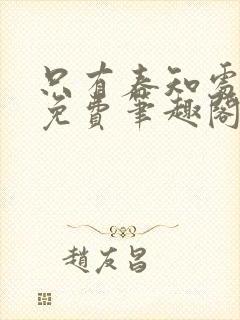 只有春知處
免費筆趣閣
趙友昌